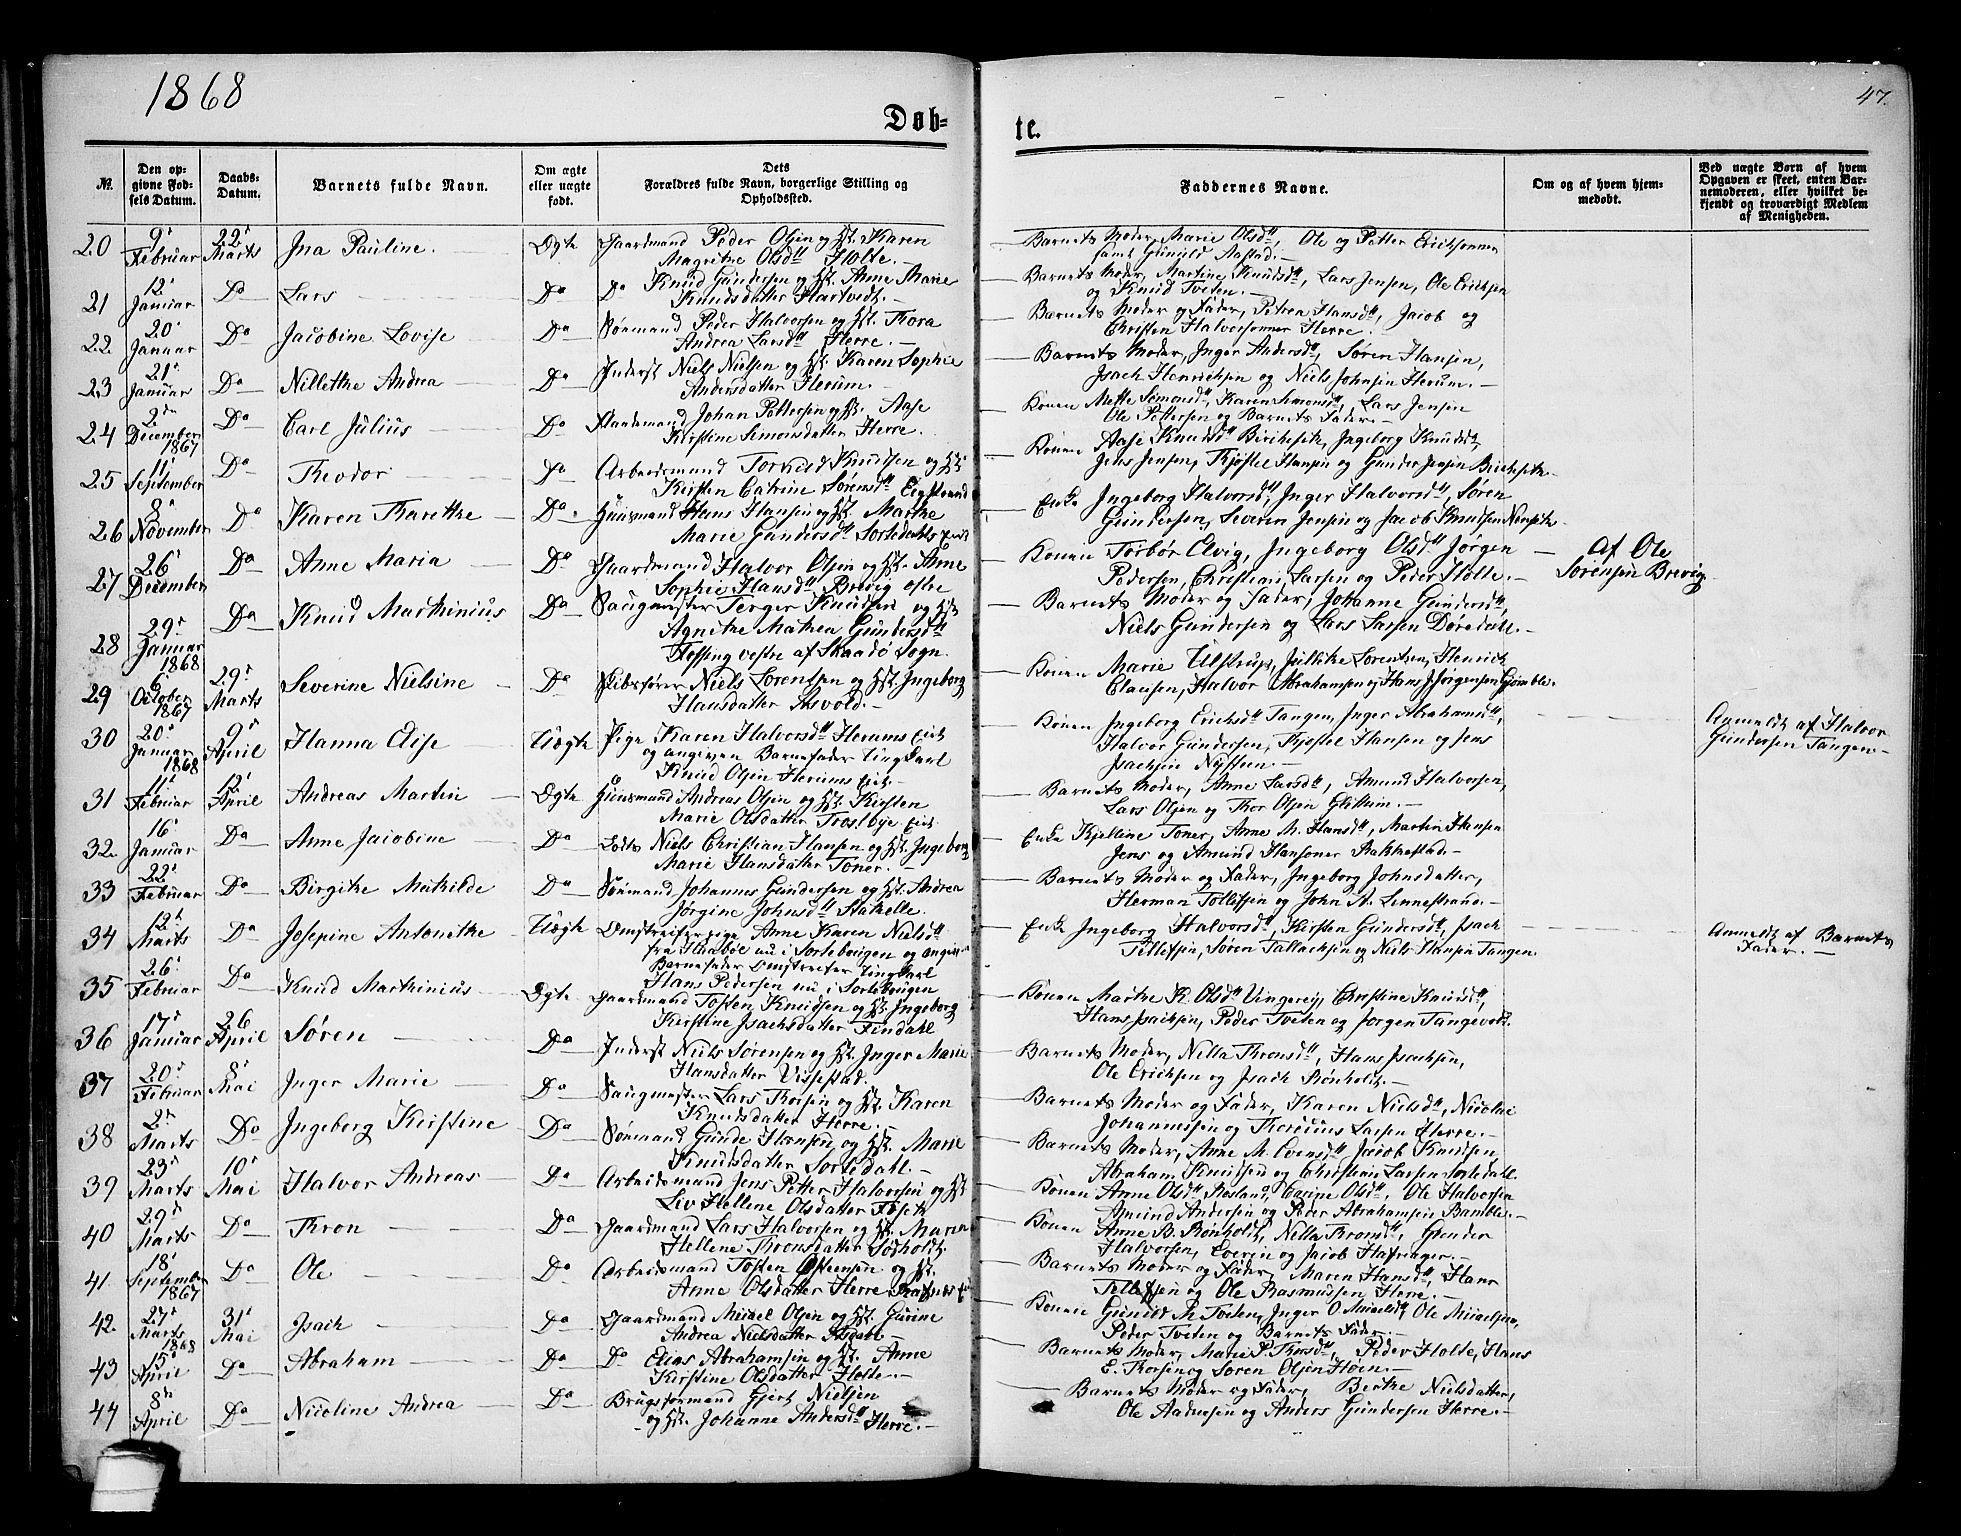 1868
47.
Døb-
te.
№.
Den op-
givne Fød-
sels Datum.
Daabs-
Datum.
Barnets fulde Navn.
Om ægte
eller uægte
født.
Dets
Forældres fulde Navn, borgerlige Stilling og
Opholdssted.
Faddernes Navne.
Om og af hvem hjem-
medøbt.
Ved uægte Børn af hvem
Opgaven er skeet, enten Bar-
nemoderen, eller hvilket be-
kjendt og troværdigt Medlem
af Menigheden.
20 9' Februar 22' Marts Ina Pauline. Ægte Gaardmand Peder Olsen og Karen
Magrethe Olsd Holte.
Barnets Moder, Marie Olsd, Ole og Petter Ericksønner
samt Gunild Aastad.
21 12' Januar Do Lars Do Do Knud Gundersen og Anne Marie
Knudsdatter Hartvedt.
Barnets Moder, Martine Knudsd, Lars Jensen, Ole Ericksen
og Knud Tveten.
22 20' Januar Do Jacobine Lovise Do Sømand Peder Halvorsen og Thora
Andrea Larsd Herre.
Barnets Moder og Fader, Petrea Hansd, Jacob og
Christen Halvorsønner Herre.
23 21' Januar Do Nillethe Andrea Do Inderst Niels Nielsen og Karen Sophie
Andersdatter Herum.
Barnets Moder, Inger Andersd, Søren Hansen,
Isach Henrichsen og Niels Johnsen Herum.
24 2den December 1867 Do Carl Julius Do Johan Pettersen og Aase
Kirstine Simonsdatter Herre.
Konen Mette Simonsd, Karen Simonsd, Lars Jensen
Ole Pettersen og Barnets Fader.
25 11' September Do Theodor Do Arbeidsmand Torkild Knudsen og
Kirsten Catrine Sørensd Eegstrand
Konen Aase Knudsd Birkesæth, Ingeborg Knudsd,
Jens Jensen, Thjøstel Hansen og Gunder Jensen
26 8' November Do Karen Tharethe Do Huusmand Hans Hansen og Marthe
Marie Gundersd Sortedahls
Enke Ingeborg Halvorsd, Inger Halvorsd, Søren
Gundersen, Severin Jensen og Jacob Knudsen
27 26' December Do Anne Maria Do Gaardmand Halvor Olsen og Anne
Sophie Hansd Brevig østre
Konen Torbør Elvig, Ingeborg Olsd, Jørgen
Pedersen, Christian Larsen og Peder Holte.
Af Ole
Sørensen Brevig
28 29' Januar 1868 Do Knud Marthinius Do Saugmester Terger Knudsen og
Agnethe Mathea Gundersd
Flossing vestre af Skaadø Sogn.
Barnets Moder og Fader, Johanne Gundersd,
Niels Gundersen og Lars Larsen Døredahl.
29 6' October 1867 29' Marts Severine Nielsine Do Skibsfører Niels Lorentsen og Ingeborg
Hansdatter Asvold.
Konen Marie Ulstrup, Julliche Lorentsen, Henrich
Clausen, Halvor Abrahamsen og Hans J. Jørgensen
30 20' Januar 1868 9' April Hanna Elise Uægte Pige Karen Halvorsd Herums Eiet
og angiven Barnefader Ungkarl
Knud Olsen Herums Eiet
Konen Ingeborg Ericksd Tangen, Inger Abrahamsd,
Halvor Gundersen, Thjøstel Hansen og Jens
Isachsen Nysteen.
Anmeldt af Halvor
Gundersen Tangen
31 11' Februar 12' April Andreas Martin Ægte Huusmand Andreas Olsen og Kirsten
Marie Olsdatter
Barnets Moder, Anne Larsd, Amund Halvorsen,
Lars Olsen og Thor Olsen
32. 16' Januar Do Anne Jacobine Do Lods Niels Christian Hansen og Ingeborg
Marie Hansdatter Toner.
Enke Kjelline Toner, Anne M. Hansd, Martin Hansen
Jens og Amund Hansøner Rakkestad.
33 22' Februar Do Birgithe Mathilde Do Sømand Johannes Gundersen og Andrea
Jørgine Johnsd Stathelle.
Barnets Moder og Fader, Ingeborg Johnsdatter,
Herman Tollefsen og John A. Linnestrand.
34 12' Marts Do Josepine Antonethe Uægte Omstreiferpige Anne Karen Nielsd
fra nu i Sorteburgen og angiven
Barnefader Omstreifer Ungkarl
Hans Pedersen nu i Sorteburgen
Enke Ingeborg Halvorsd, Kirsten Gundersd, Isach
Tellefsen, Søren Tallachsen og Niels Hansen Tangen
Anmeldt af Barnets
Fader.
35 26' Februar Do Knud Marthinius Ægte Gaardmand Tosten Knudsen og Ingeborg
Kirstine Isachsdatter Findahl
Konen Marthe K. Olsd Vingereij, Christine Knudsd,
Hans Isachsen, Peder Tveten og Jørgen Tangevold.
36 17' Januar 26' April Søren Do Inderst Niels Sørensen og Inger Marie
Hansdatter Vissestad.
Barnets Moder, Nella Thronsd, Hans Isachsen,
Ole Ericksen og Isach Rønholdt.
37 20' Februar 8' Mai Inger Marie Do Saugmester Lars Thorsen og Karen
Knudsdatter Herre.
Barnets Moder og Fader, Karen Nielsd, Nicolai
Johannesen og Thorenius Larsen Herre.
38 2' Marts Do Ingeborg Kirstine Do Sømand Gunde Hansen og Marie
Knudsdatter Sortedahl.
Barnets Moder, Anne M. Evensd, Jacob Knudsen
Abraham Knudsen og Christian Larsen Sortedahl.
39 23' Marts 10' Mai Halvor Andreas Do Arbeidsmand Jens Petter Halvorsen og
Liv Hellene Olsdatter
Konen Anne Olsd Rosland, Carine Olsd, Ole Halvorsen
Amund Andersen og Peder Abrahamsen Bamble.
40 29' Marts Do Thron Do Gaardmand Lars Halvorsen og Maren
Hellene Thronsdatter Rødholdt
Konen Anne B. Rønholdt, Nella Thronsd, Gunder
Halvorsen, Everin og Jacob Hafsager.
41. 18' September 1867 Do Ole Do Arbeidsmand Tosten Østensen og
Anne Olsdatter Herre
Barnets Moder og Fader, Maren Hansd, Hans
Tellefsen og Ole Rasmussen Herre.
42. 27' Marts 1868 31' Mai Isach Do Gaardmand Michael Olsen og Gurine
Andrea Nielsdatter
Konen Gunild Th. Tveten, Inger O. Michaelsd, Ole Michaelsen,
Peder Tveten og Barnets Fader.
43 15' April Do Abraham Do Do Elias Abrahamsen og Anne
Kirstine Olsdatter Holte.
Barnets Moder, Marie P. Thorsd, Peder Holte, Hans
E. Thorsen og Søren Olsen Høen.
44 8' April Do Nicoline Andrea Do Brugsformand Gjert Nielsen
og Johanne Andersd Herre.
Barnets Moder og Fader, Berthe Nielsdatter,
Ole Aadnesen og Anders Gundersen Herre.